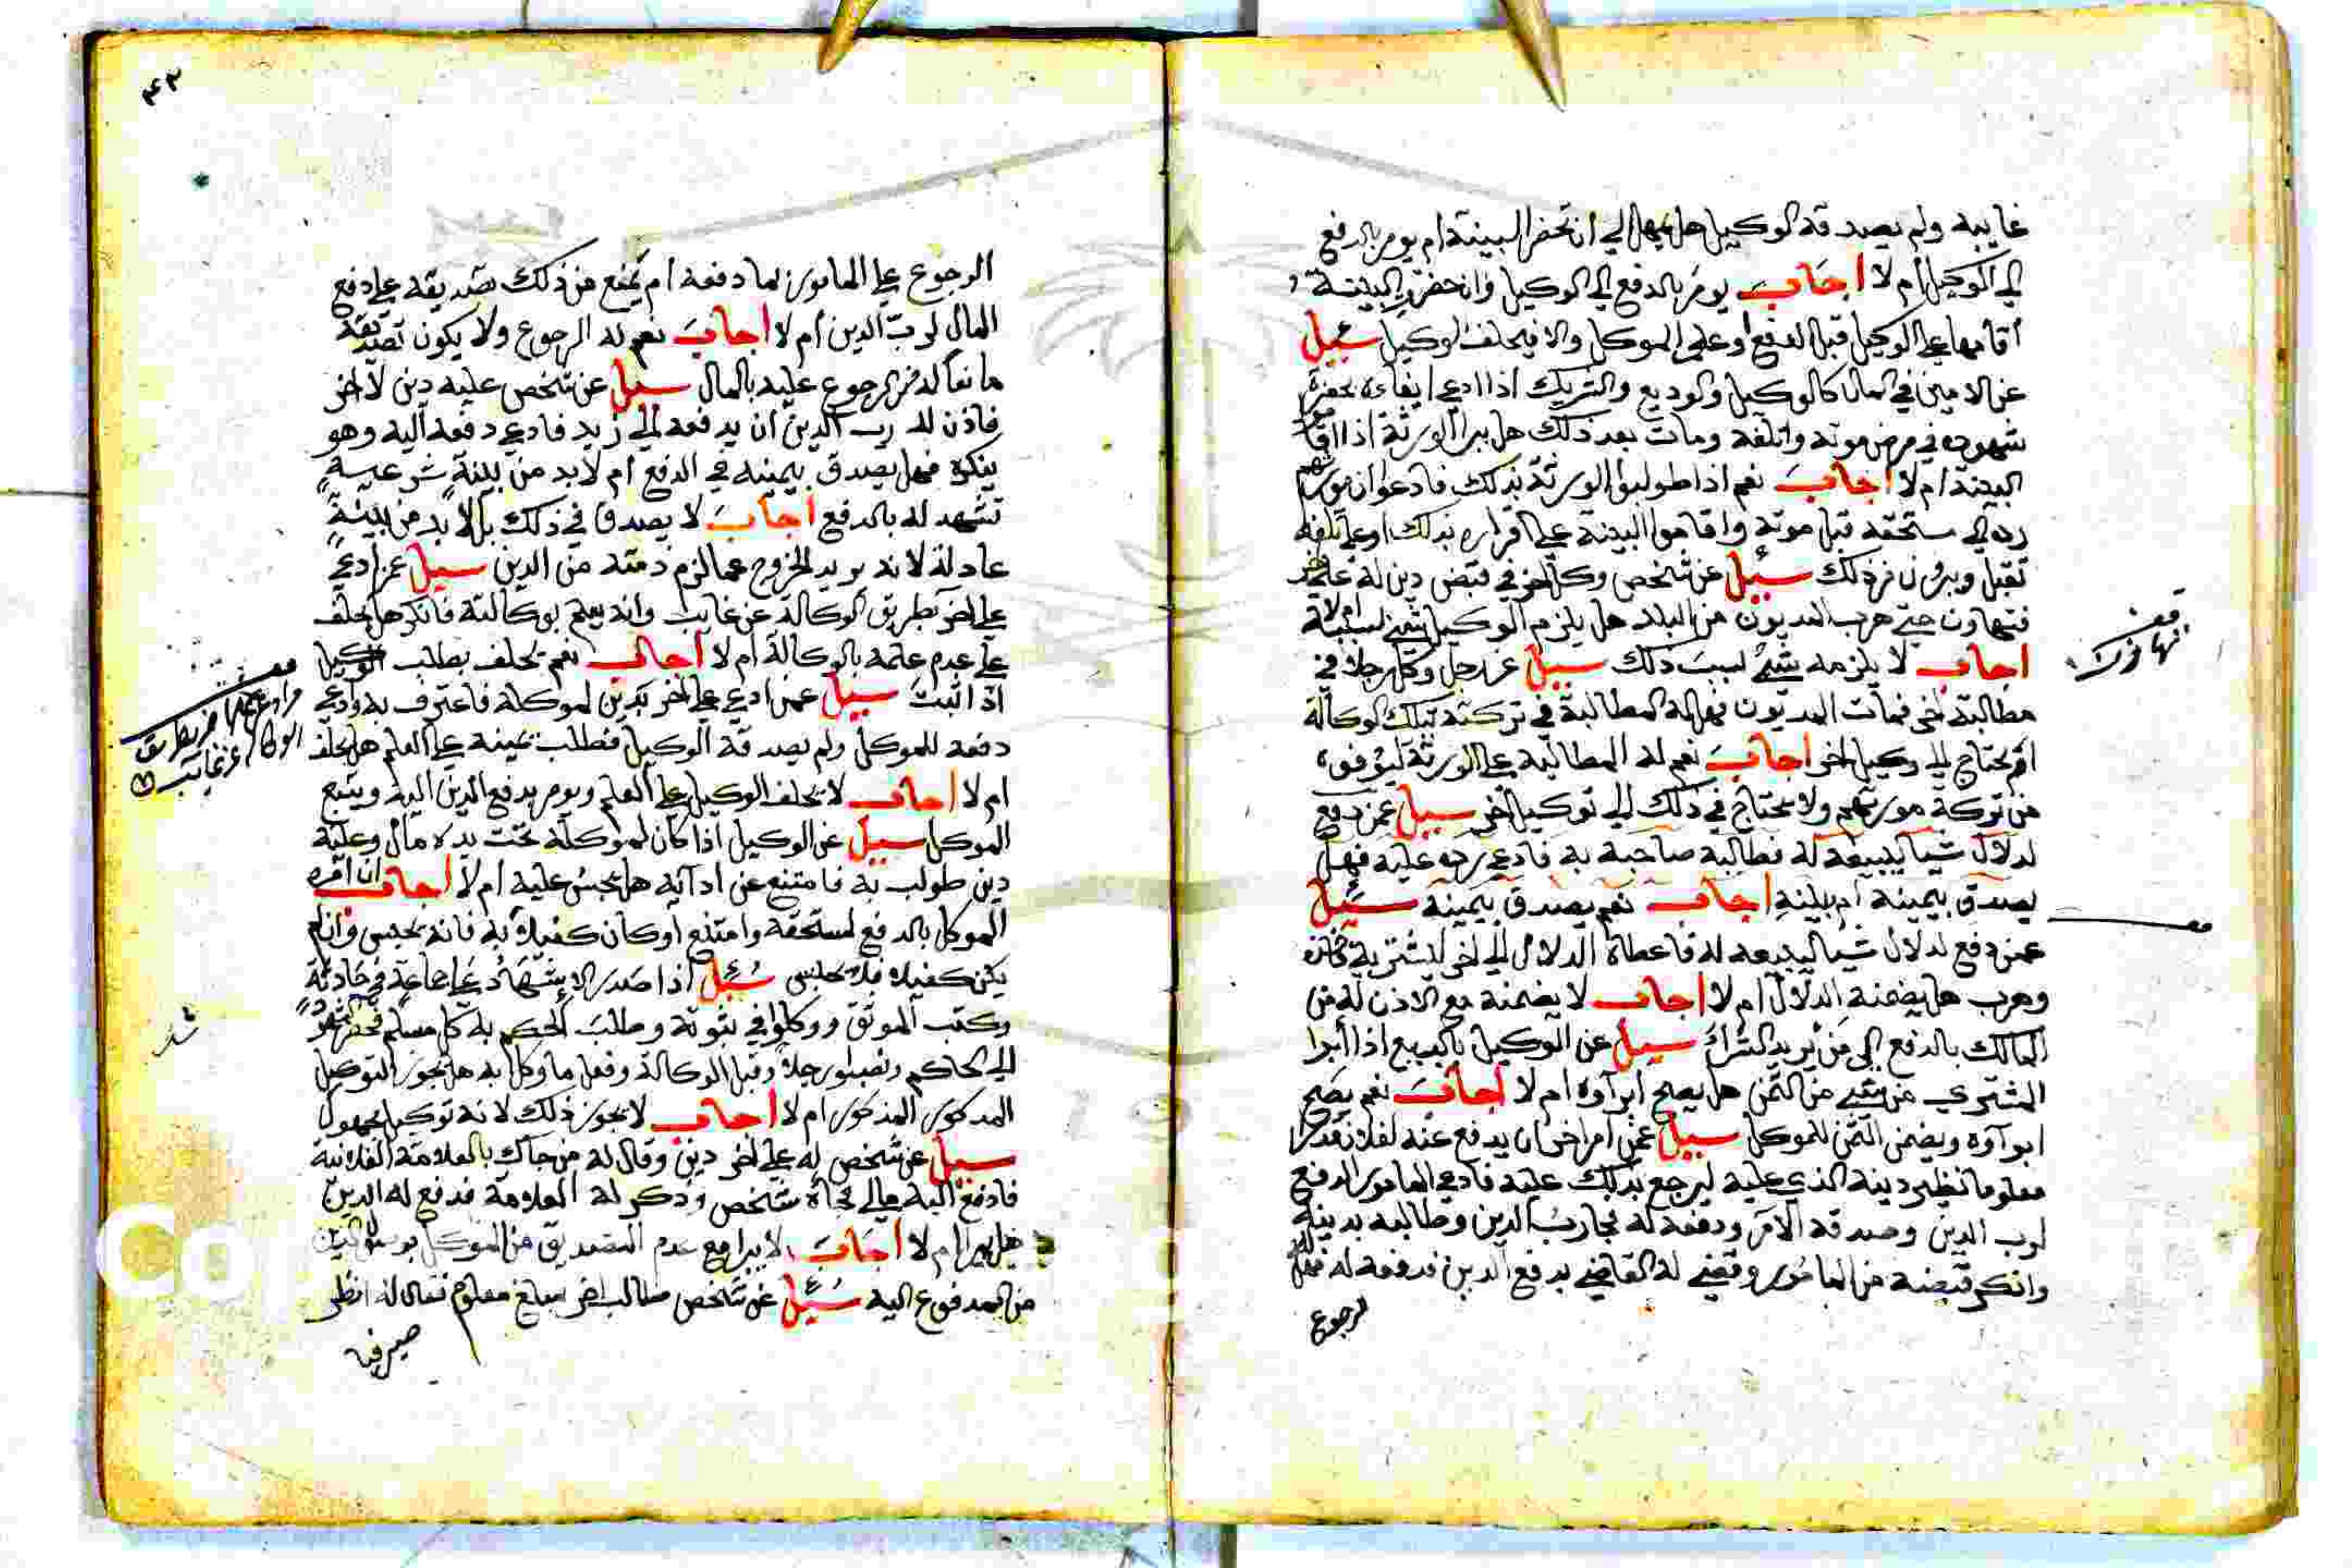 غايبة ولم يصدقه الوكيل هل يمهل الي ان تحضر البينة ام يومر بالدفع
الي الوكيل ام لا اجاب يومر بالدفع الي الوكيل وان حضرت البينة
اقامها علي الوكيل قبل الدفع او علي الموكل والا فيحلف الوكيل سئيل
عن الامين في المال كالوكيل والوديع والشريك اذا ادعي ايفاه بحضرة
شهوده في مرض موته واتلفه ومات بعد ذلك هل يبرا الورثة اذا اقاموا
البينة ام لا اجاب نعم اذا طولبوا الورثة بذلك فادعوا ان مورثهم
رده الي مستحقه قبل موته واقاموا البينة علي اقراره بذلك او علي تلفه
تقبل ويبرون من ذلك سئيل عن شخص وكل اخر في قبض دين له علي اخر
فتهاون حتي هرب المديون من البلد هل يلزم الوكيل شيئ بسببه ام لا
اجاب لا يلزمه شئ بسبب ذلك سييل عن رجل وكل رجلا في
مطالبة اخر فمات المديون فهل له المطالبة في تركته بتلك الوكالة
ام يحتاج الي وكيل اخر اجاب نعم له المطالبة علي الورثة ليوفوه
من تركة مورثهم ولا يحتاج في ذلك الي توكيل اخر سييل عمن دفع
لدلال شيا ليبيعه له فطالبه صاحبه به فادعي رده عليه فهل
يصدق بيمينه ام ببينة اجاب نعم يصدق بيمينه سئيل
عمن دفع لدلال شيا ليبيعه له فاعطاه الدلال الي اخر ليشتريه فخانه
وهرب هل يضمنه الدلال ام لا اجاب لا يضمنه مع الاذن له من
المالك بالدفع الي من يريد الشراء سييل عن الوكيل بالبيع اذا ابرا
المشتري من شيئ من الثمن هل يصح ابراوه ام لا اجاب نعم يصح
ابراوه ويضمن الثمن للموكل سييل عمن امر اخر ان يدفع عنه لفلان قدرا
معلوما نظير دينه الذي عليه ليرجع بذلك عليه فادعي المامور الدفع
لرب الدين وصدقه الامر ودفعه له فجا رب الدين وطالبه بدينه
وانكر قبضه من المامور وقضي له القاضي بدفع الدين فدفعه له فهل له
لرجوع
٤٣
الرجوع علي المامور بما دفعه ام يمنع من ذلك تصديقه علي دفع
المال لرب الدين ام لا اجاب نعم له الرجوع ولا يكون تصديقه
مانعا له من الرجوع عليه بالمال سييل عن شخص عليه دين لاخر
فاذن له رب الدين ان يدفعه الي زيد فادعي دفعه اليه وهو
ينكره فهل يصدق بيمينه في الدفع ام لا بد من بينة شرعية
تشهد له بالدفع اجاب لا يصدق في ذلك بل لا بد من بينة
عادلة لانه يريد الخروج عما لزم ذمته من الدين سييل عمن ادعي
علي اخر بطريق الوكالة عن غايب وانه يعلم بوكالته فانكر هل يحلف
علي عدم علمه بالوكالة ام لا اجاب نعم يحلف بطلب الوكيل
اذا اثبت سييل عمن ادعي علي اخر بدين لموكله فاعترف به وادعي
دفعه للموكل ولم يصدقه الوكيل فطلب يمينه علي العلم هل يحلف
ام لا اجاب لا يحلف الوكيل علي العلم ويومر بدفع الدين اليه ويتبع
الموكل سييل عن الوكيل اذا كان لموكله تحت يده مال وعليه
دين طولب به فامتنع عن ادائه هل يحبس عليه ام لا اجاب ان امره
الموكل بالدفع لمستحقه وامتنع او كان كفيلا به فانه يحبس وان لم
يكن كفيلا فلا يحبس سئيل اذا صدر الاشهاد علي جماعة في حادثة
وكتب الموثق ووكلوا في ثبوته وطلب الحكم به كل مسلم فحضر الشهود
الي الحاكم ونصبوا رجلا وقبل الوكالة وفعل ما وكل به هل يجوز التوكيل
المذكور المذكور ام لا اجاب لا يجوز ذلك لانه توكيل مجهول
سييل عن شخص له علي اخر دين وقال له من جاك بالعلامة الفلانية
فادفع اليه مالي فجاه شخص وذكر له العلامة فدفع له الدين
هل يبرا ام لا اجاب لا يبرا مع عدم التصديق من الموكل
من المدفوع اليه سئيل عن شخص طالب اخر بمبلغ معلوم فقال له انظر
صيرفيا